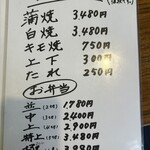 蒲焼 3,480円
白焼 3,480円
キモ焼 750円
上下 300円
たれ 250円
お弁当
並 1,780円
中 2400円
上 2,900円
特上 3,480円